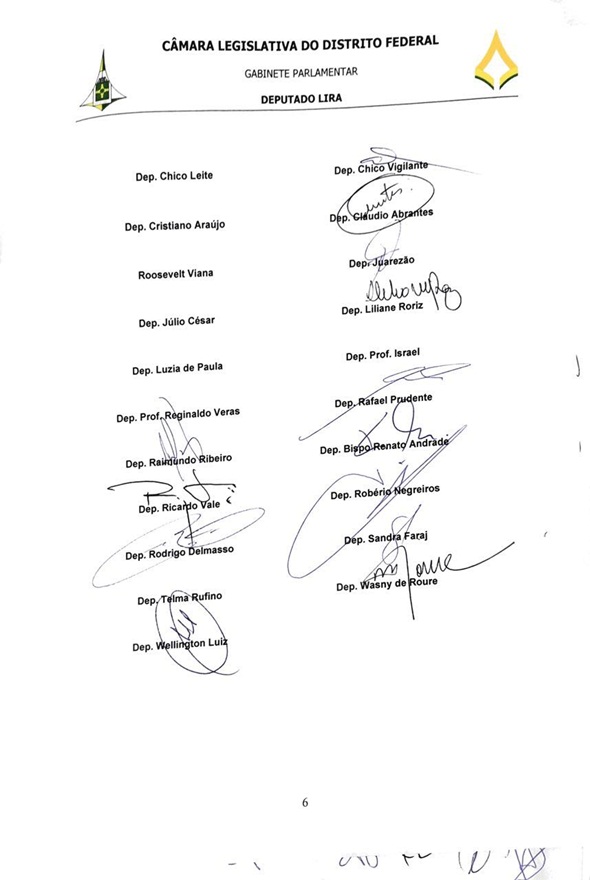 CÂMARA LEGISLATIVA DO DISTRITO FEDERAL
GABINETE PARLAMENTAR
DEPUTADO LIRA
Dep. Chico Leite
Dep. Cristiano Araújo
Roosevelt Viana
Dep. Júlio César
Dep. Luzia de Paula
Dep. Prof. Reginaldo Veras
Dep. Raimundo Ribeiro
Dep. Ricardo Vale
Dep. Rodrigo Delmasso
Dep. Telma Rufino
Dep. Wellington Luiz
Dep. Chico Vigilante
Dep. Cláudio Abrantes
Dep. Juarezão
Dep. Liliane Roriz
Dep. Prof. Israel
Dep. Rafael Prudente
Dep. Bispo Renato Andrade
Dep. Robério Negreiros
Dep. Sandra Faraj
Dep. Wasny de Roure
6